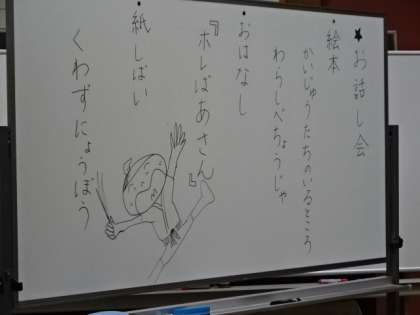 ★お話し会
・絵本
かいじゅうたちのいるところ
わらしべちょうじゃ
・おはなし
『ホレばあさん』
・紙しばい
くわずにょうぼう